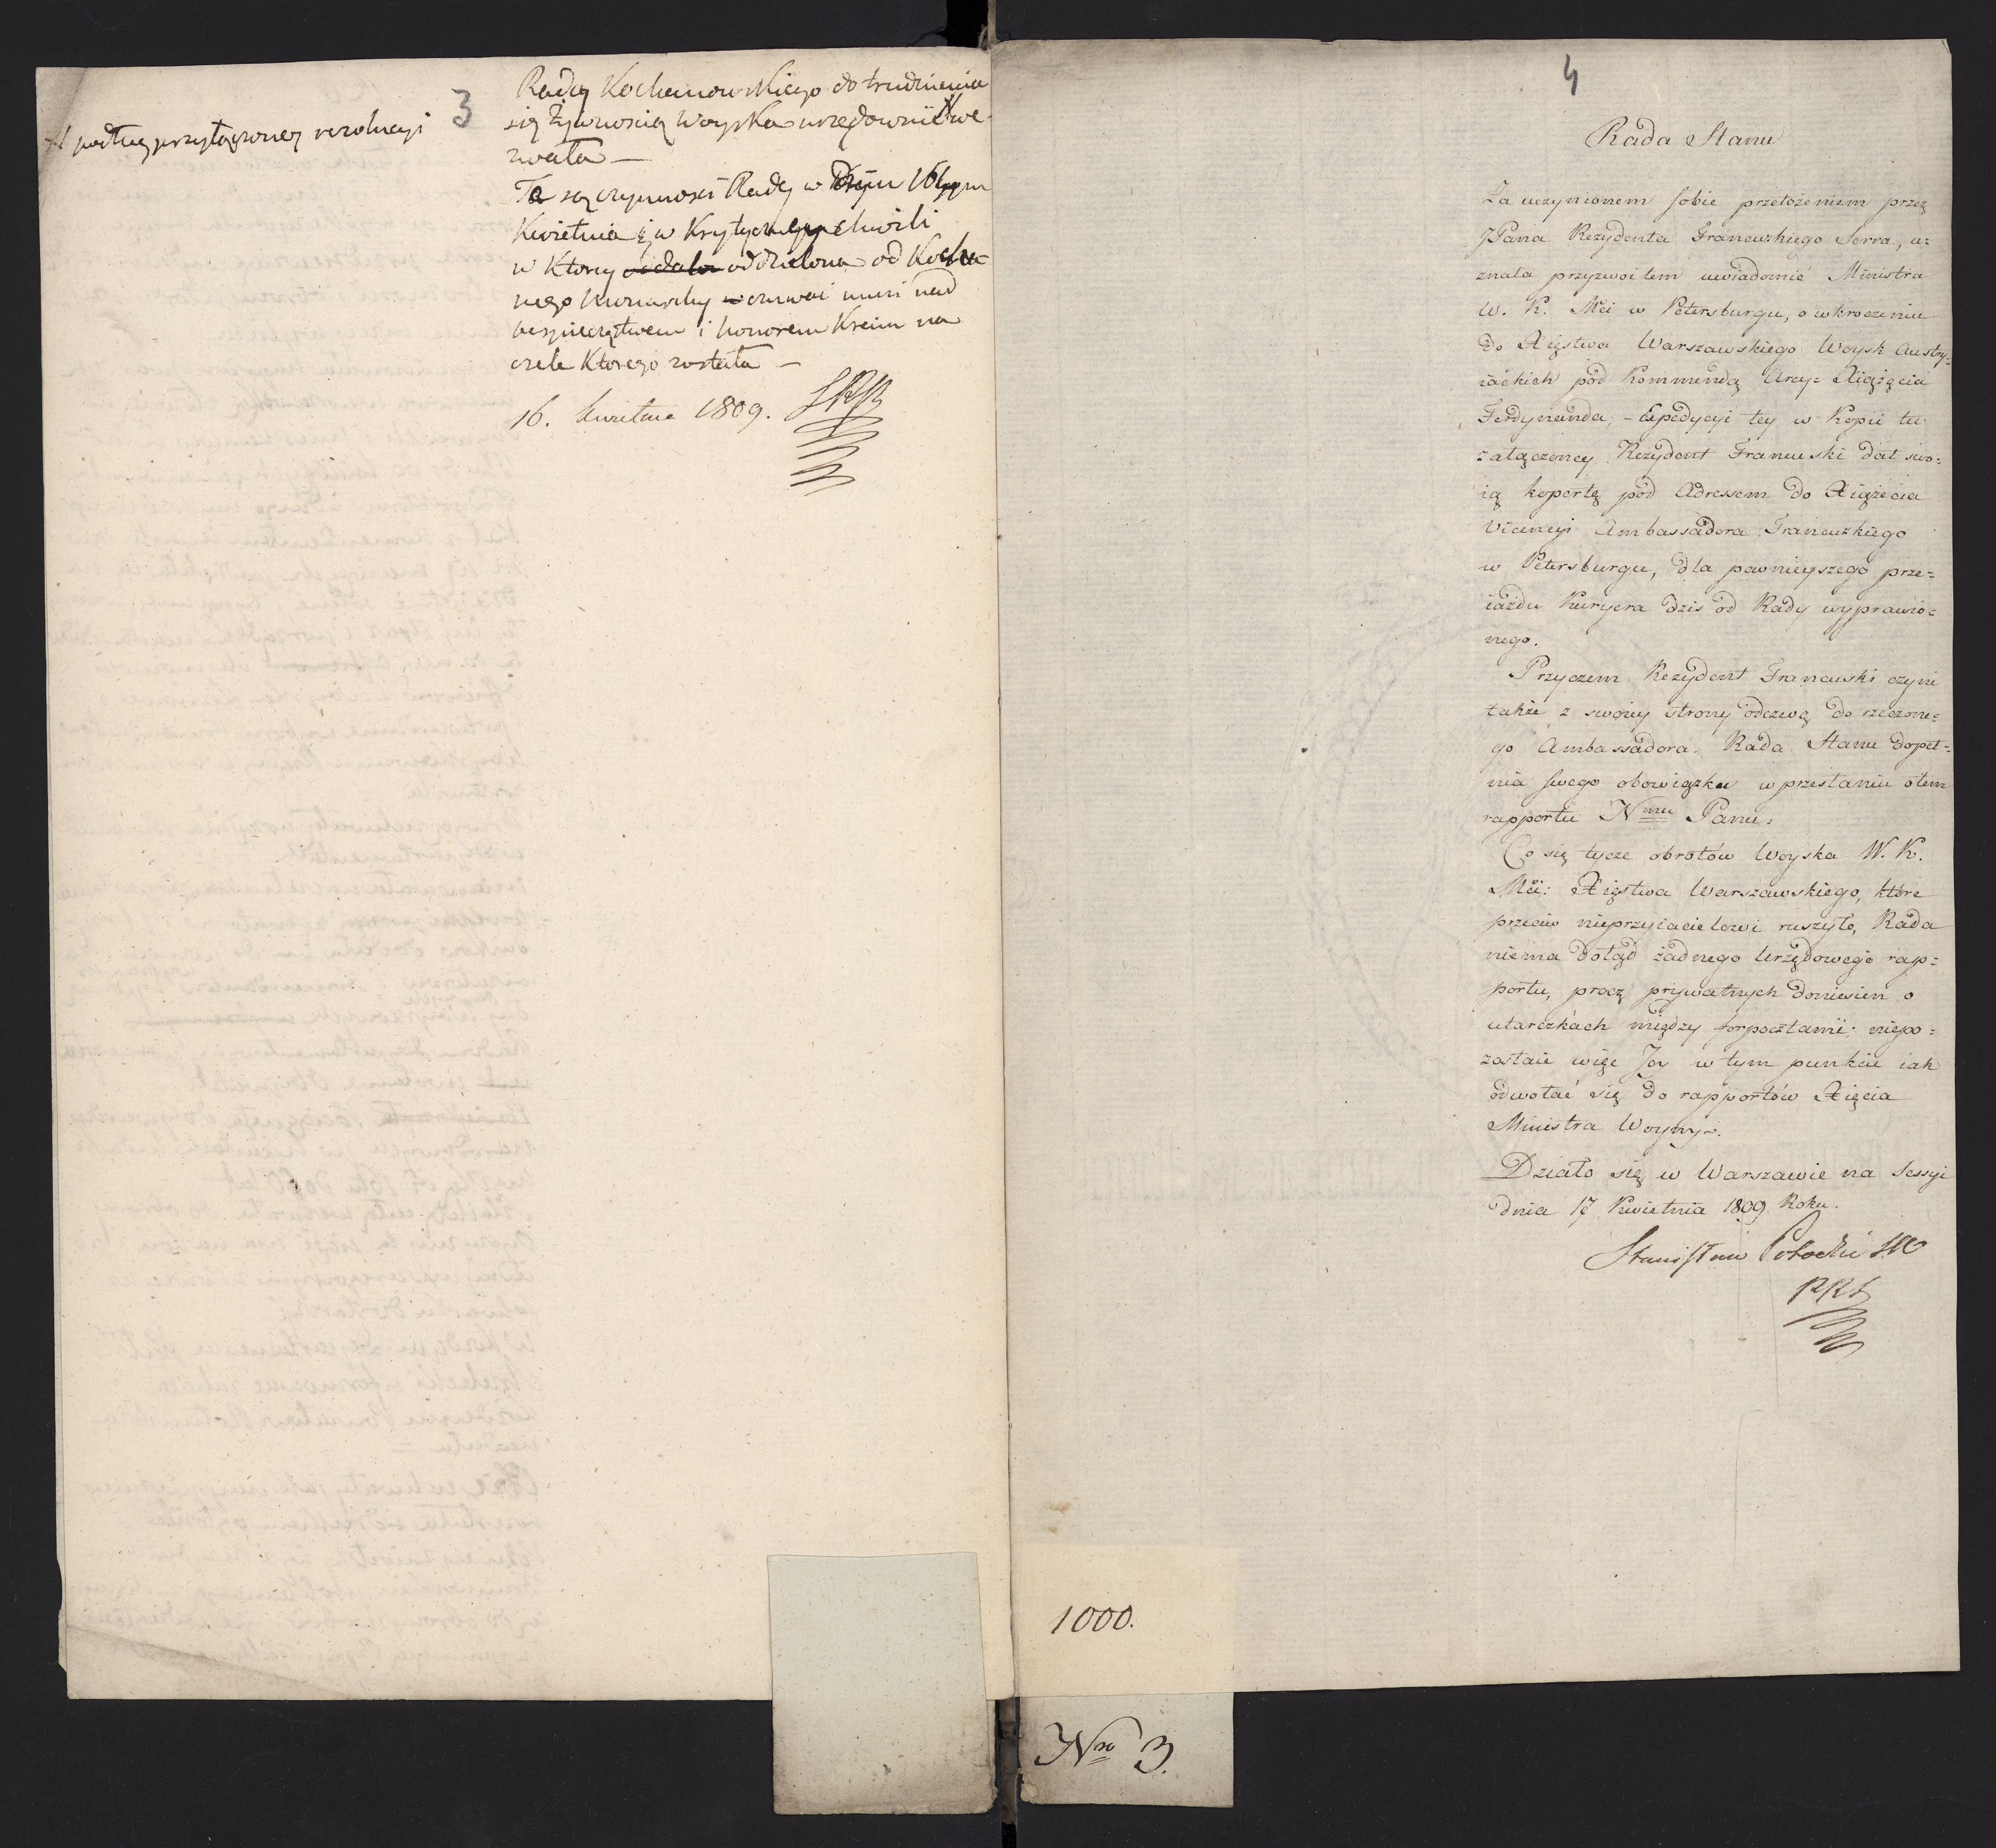 3
# podług przyłączoney rezolucyi
Radcę Kochanowskiego do trudnienia
się Żywnością Woyska urzędownie # we-
zwała —
Te są czynności Rady w Dniu 16tym
Kwietnia i w krytyczney chwili
w ktorey oddalo oddzielona od Kocha-
nego Monarchy czuwać musi nad
bespieczeństwem i honorem Kraiu na
czele ktorego została —
16. Kwietnia 1809. SPPR
4
Rada Stanu
Za uczynionem sobie przełożeniem przez
JPana Rezydenta Francuzkiego Serra, u=
znała przyzwoitem uwiadomić Ministra
W. K. Mći w Petersburgu, o wkroczeniu
do Xięstwa Warszawskiego Woysk Austry=
iackich pod Kommendą Arcy=Xiążęcia
Ferdynanda, – Expedycyi tey w Kopii tu
załączoney Rezydent Francuski dał swo=
ią kopertę pod Adressem do Xiążęcia
Vicencyi Ambassadora Francuzkiego
w Petersburgu, dla pewnieyszego prze=
iazdu Kuryera dziś od Rady wyprawio=
nego.
Przyczem Rezydent Francuski czyni
także z swoiey strony odezwę do rzeczone=
go Ambassadora. Rada Stanu dopeł=
nia swego obowiązku w przesłaniu otem
rapportu Nmu Panu.
Co się tycze obrotów Woyska W. K.
Mći: Xięstwa Warszawskiego, które
przeciw nieprzyiacielowi ruszyło, Rada
niema dotąd żadnego Urzędowego rap=
portu, procz prywatnych doniesien o
utarczkach między forpocztami: niepo=
zostaie więc Jey w tym punkcie iak
odwołać się do rapportów Xięcia
Ministra Woyny.
Działo się w Warszawie na Sessyi
dnia 17 Kwietnia 1809 Roku.
Stanisław Potocki
1000.
Nro 3.